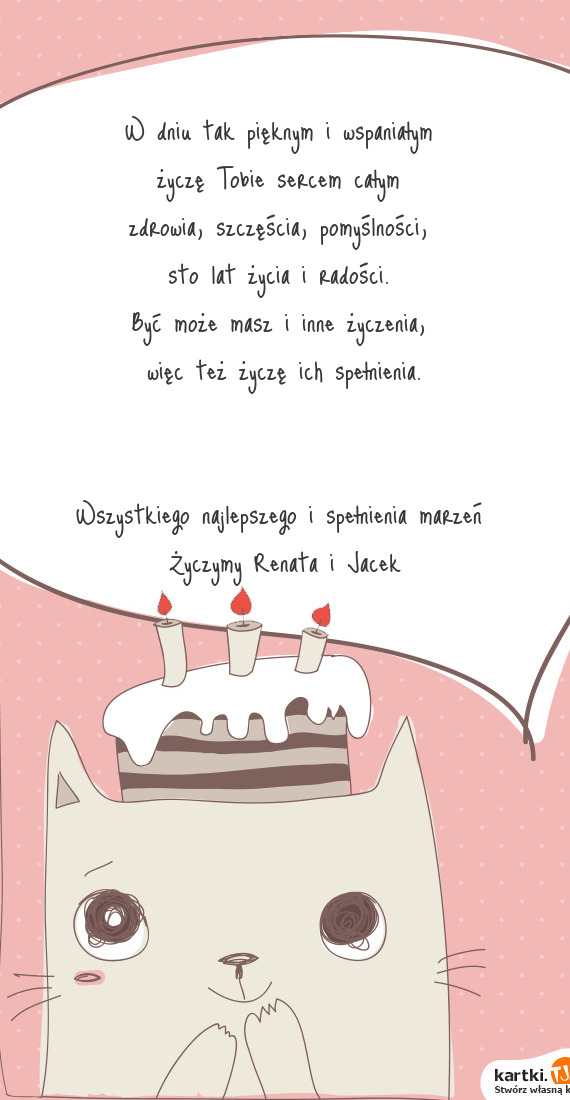 W dniu tak pięknym i wspaniałym
życzę Tobie sercem całym
zdrowia, szczęścia, pomyślności,
sto lat życia i radości.
Być może masz i inne życzenia,
więc też życzę ich spełnienia.
Wszystkiego najlepszego i spełnienia marzeń
Życzymy Renata i Jacek
kartki.TJ
Stwórz własną k